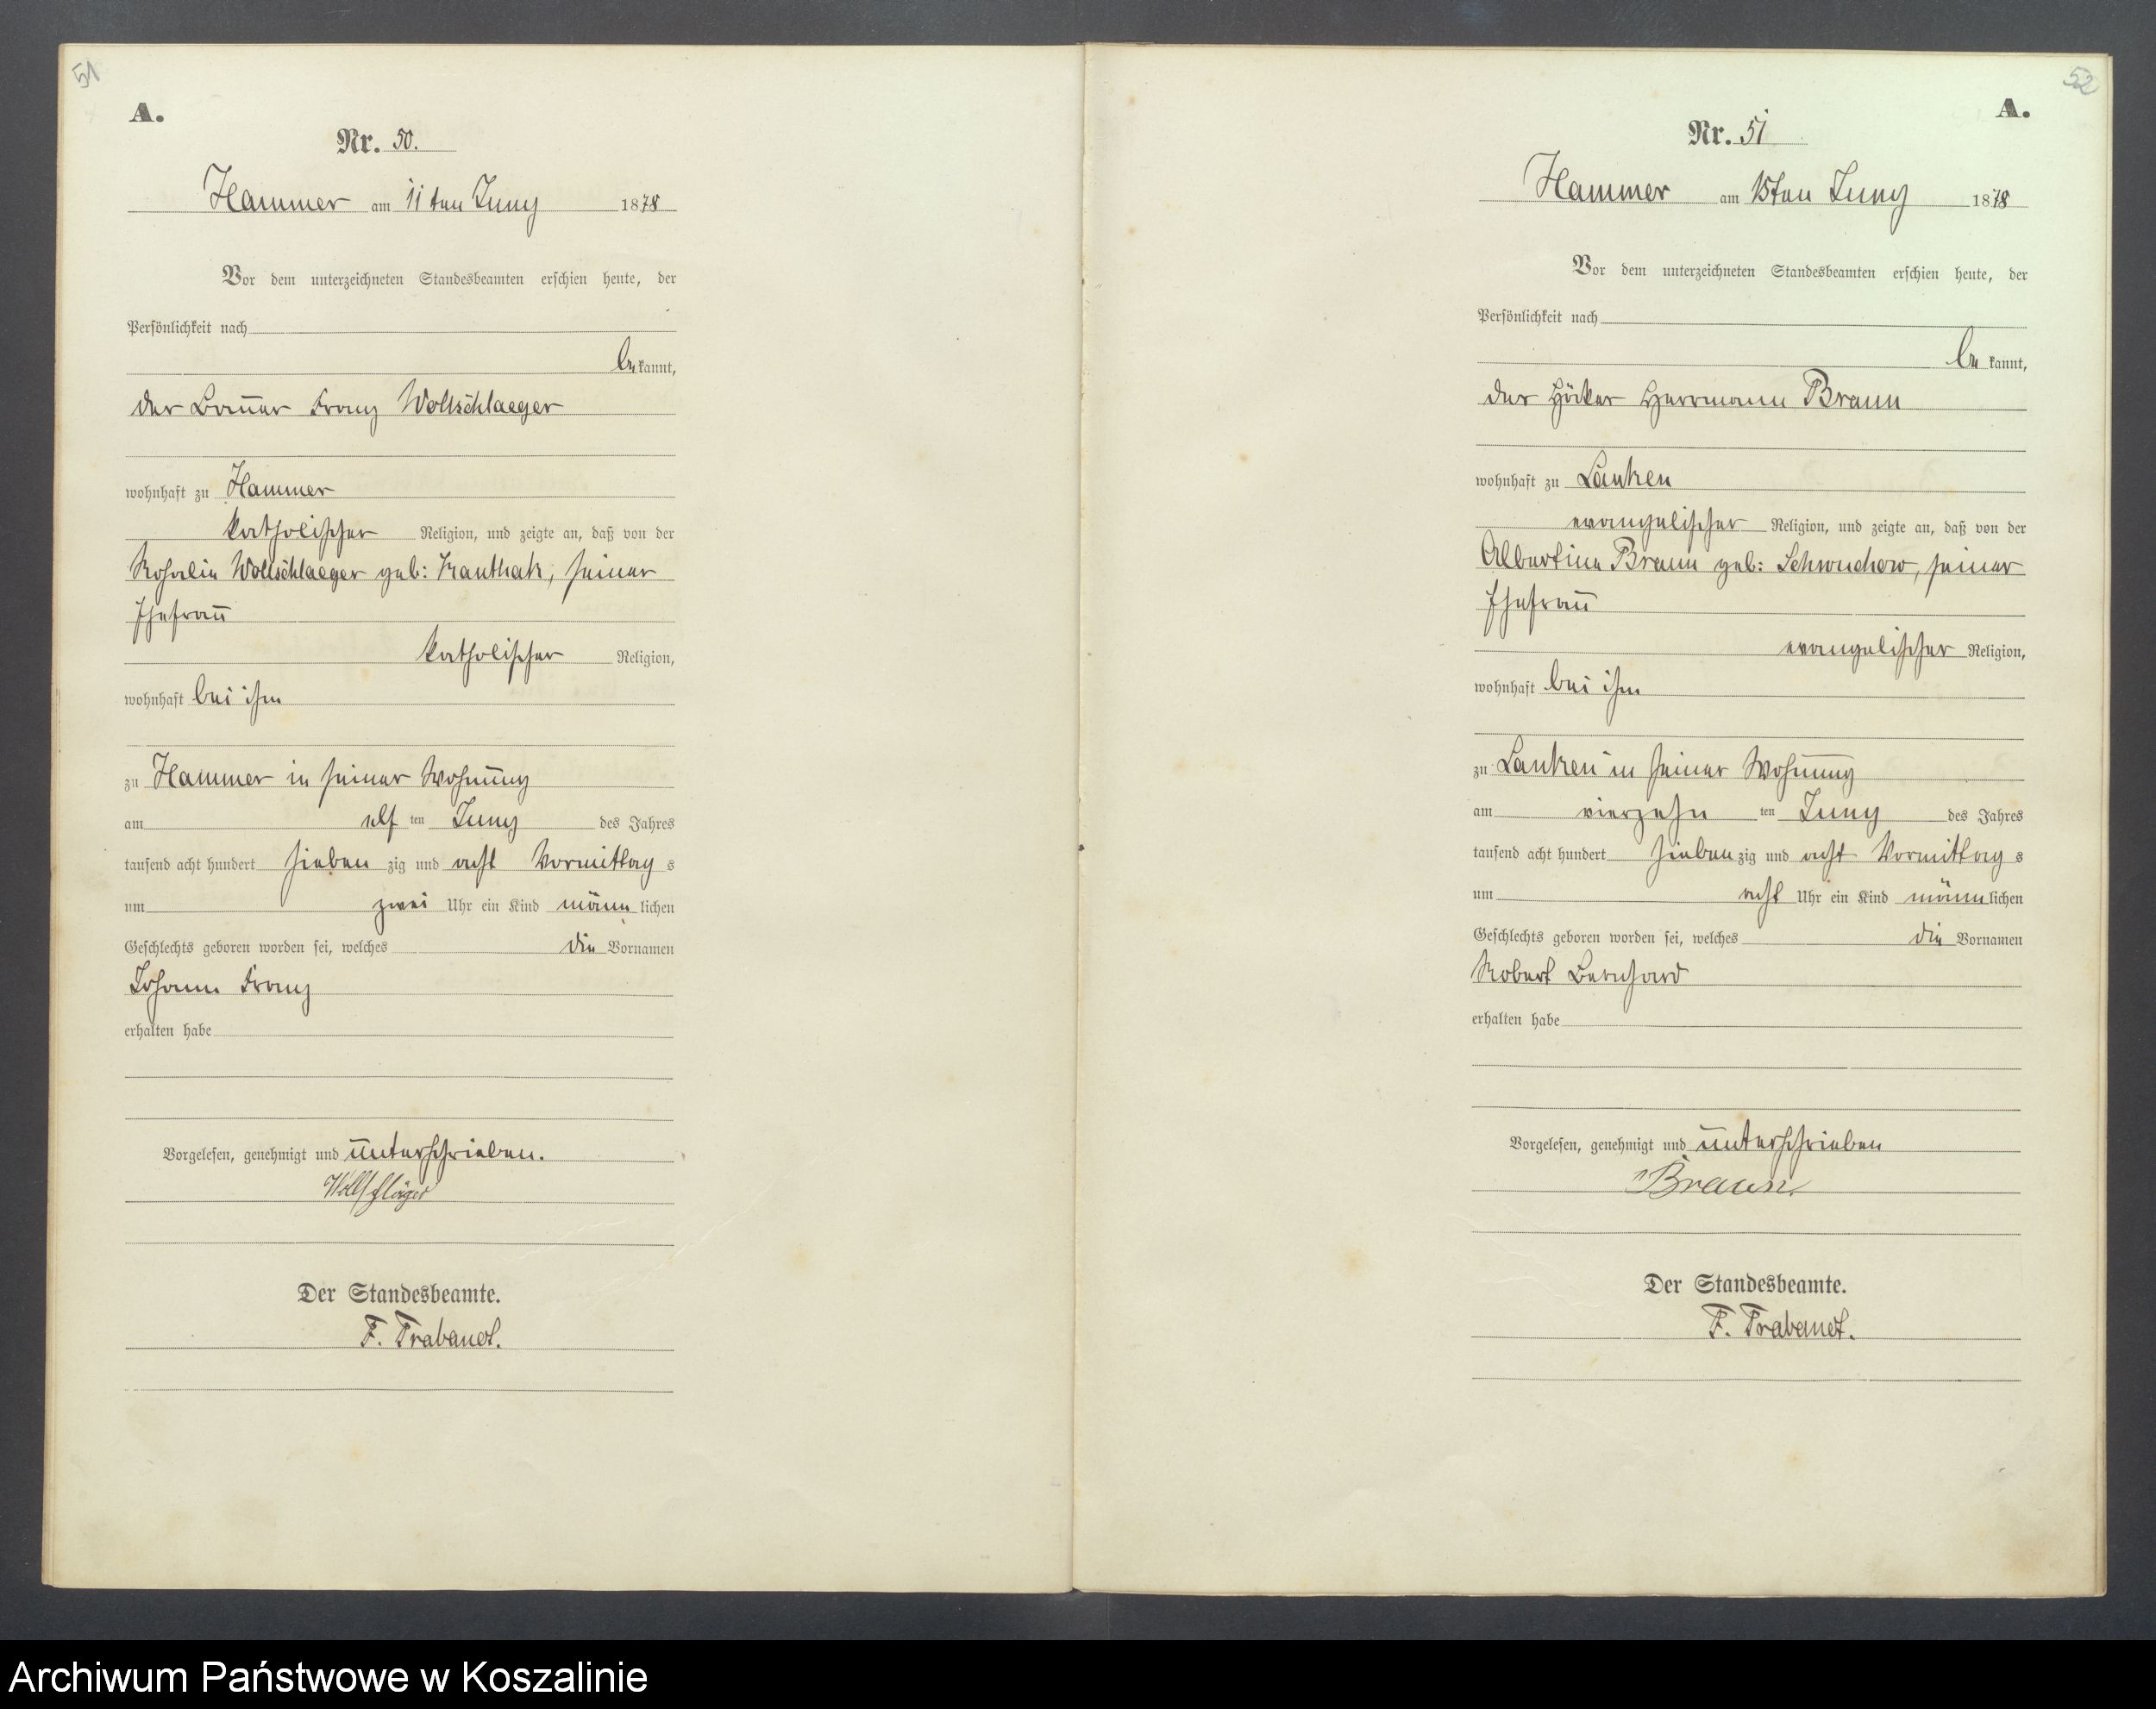 51
A.
Nr. 50.
Hammer am 11ten Juny 1878
Vor dem unterzeichneten Standesbeamten erschien heute, der
Persönlichkeit nach
bekannt,
der Bauer Franz Wollschlaeger
wohnhaft zu Hammer
katholischer Religion, und zeigte an, daß von der
Rosalie Wollschlaeger geb: Kanthak, seiner
Ehefrau
katholischer Religion,
wohnhaft bei ihm
zu Hammer in seiner Wohnung
am elf ten Juny des Jahres
tausend acht hundert sieben zig und acht Vormittag s
um zwei Uhr ein Kind männ lichen
Geschlechts geboren worden sei, welches die Vornamen
Johann Franz
erhalten habe
Vorgelesen, genehmigt und unterschrieben.
Wollschläger
Der Standesbeamte.
F. Trabandt.
52
A.
Nr. 51
Hammer am 15ten Juny 1878
Vor dem unterzeichneten Standesbeamten erschien heute, der
Persönlichkeit nach
be kannt,
der Höcker Herrmann Braun
wohnhaft zu Lanken
evangelischer Religion, und zeigte an, daß von der
Albertine Braun geb: Schwuchow, seiner
Ehefrau
evangelischer Religion,
wohnhaft bei ihm
zu Lanken in seiner Wohnung
am vierzehn ten Juny des Jahres
tausend acht hundert sieben zig und acht Vormittag s
um acht Uhr ein Kind männ lichen
Geschlechts geboren worden sei, welches die Vornamen
Robert Bernhard
erhalten habe
Vorgelesen, genehmigt und unterschrieben
Braun
Der Standesbeamte.
F. Trabandt.
Archiwum Państwowe w Koszalinie